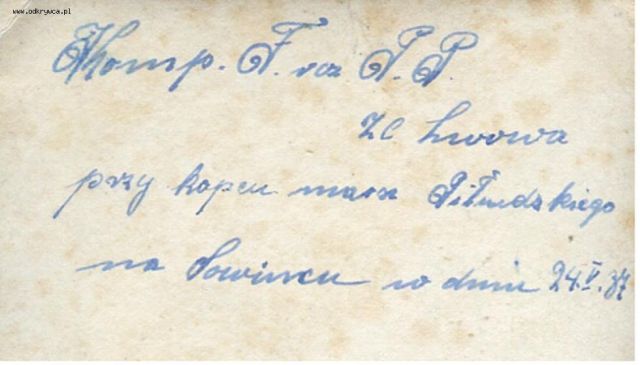 www.odkrywca.pl
Komp. F. rez P.P.
ze Lwowa
przy kopcu marsz Piłsudzkiego
na Sowińcu w dniu 24.V.37